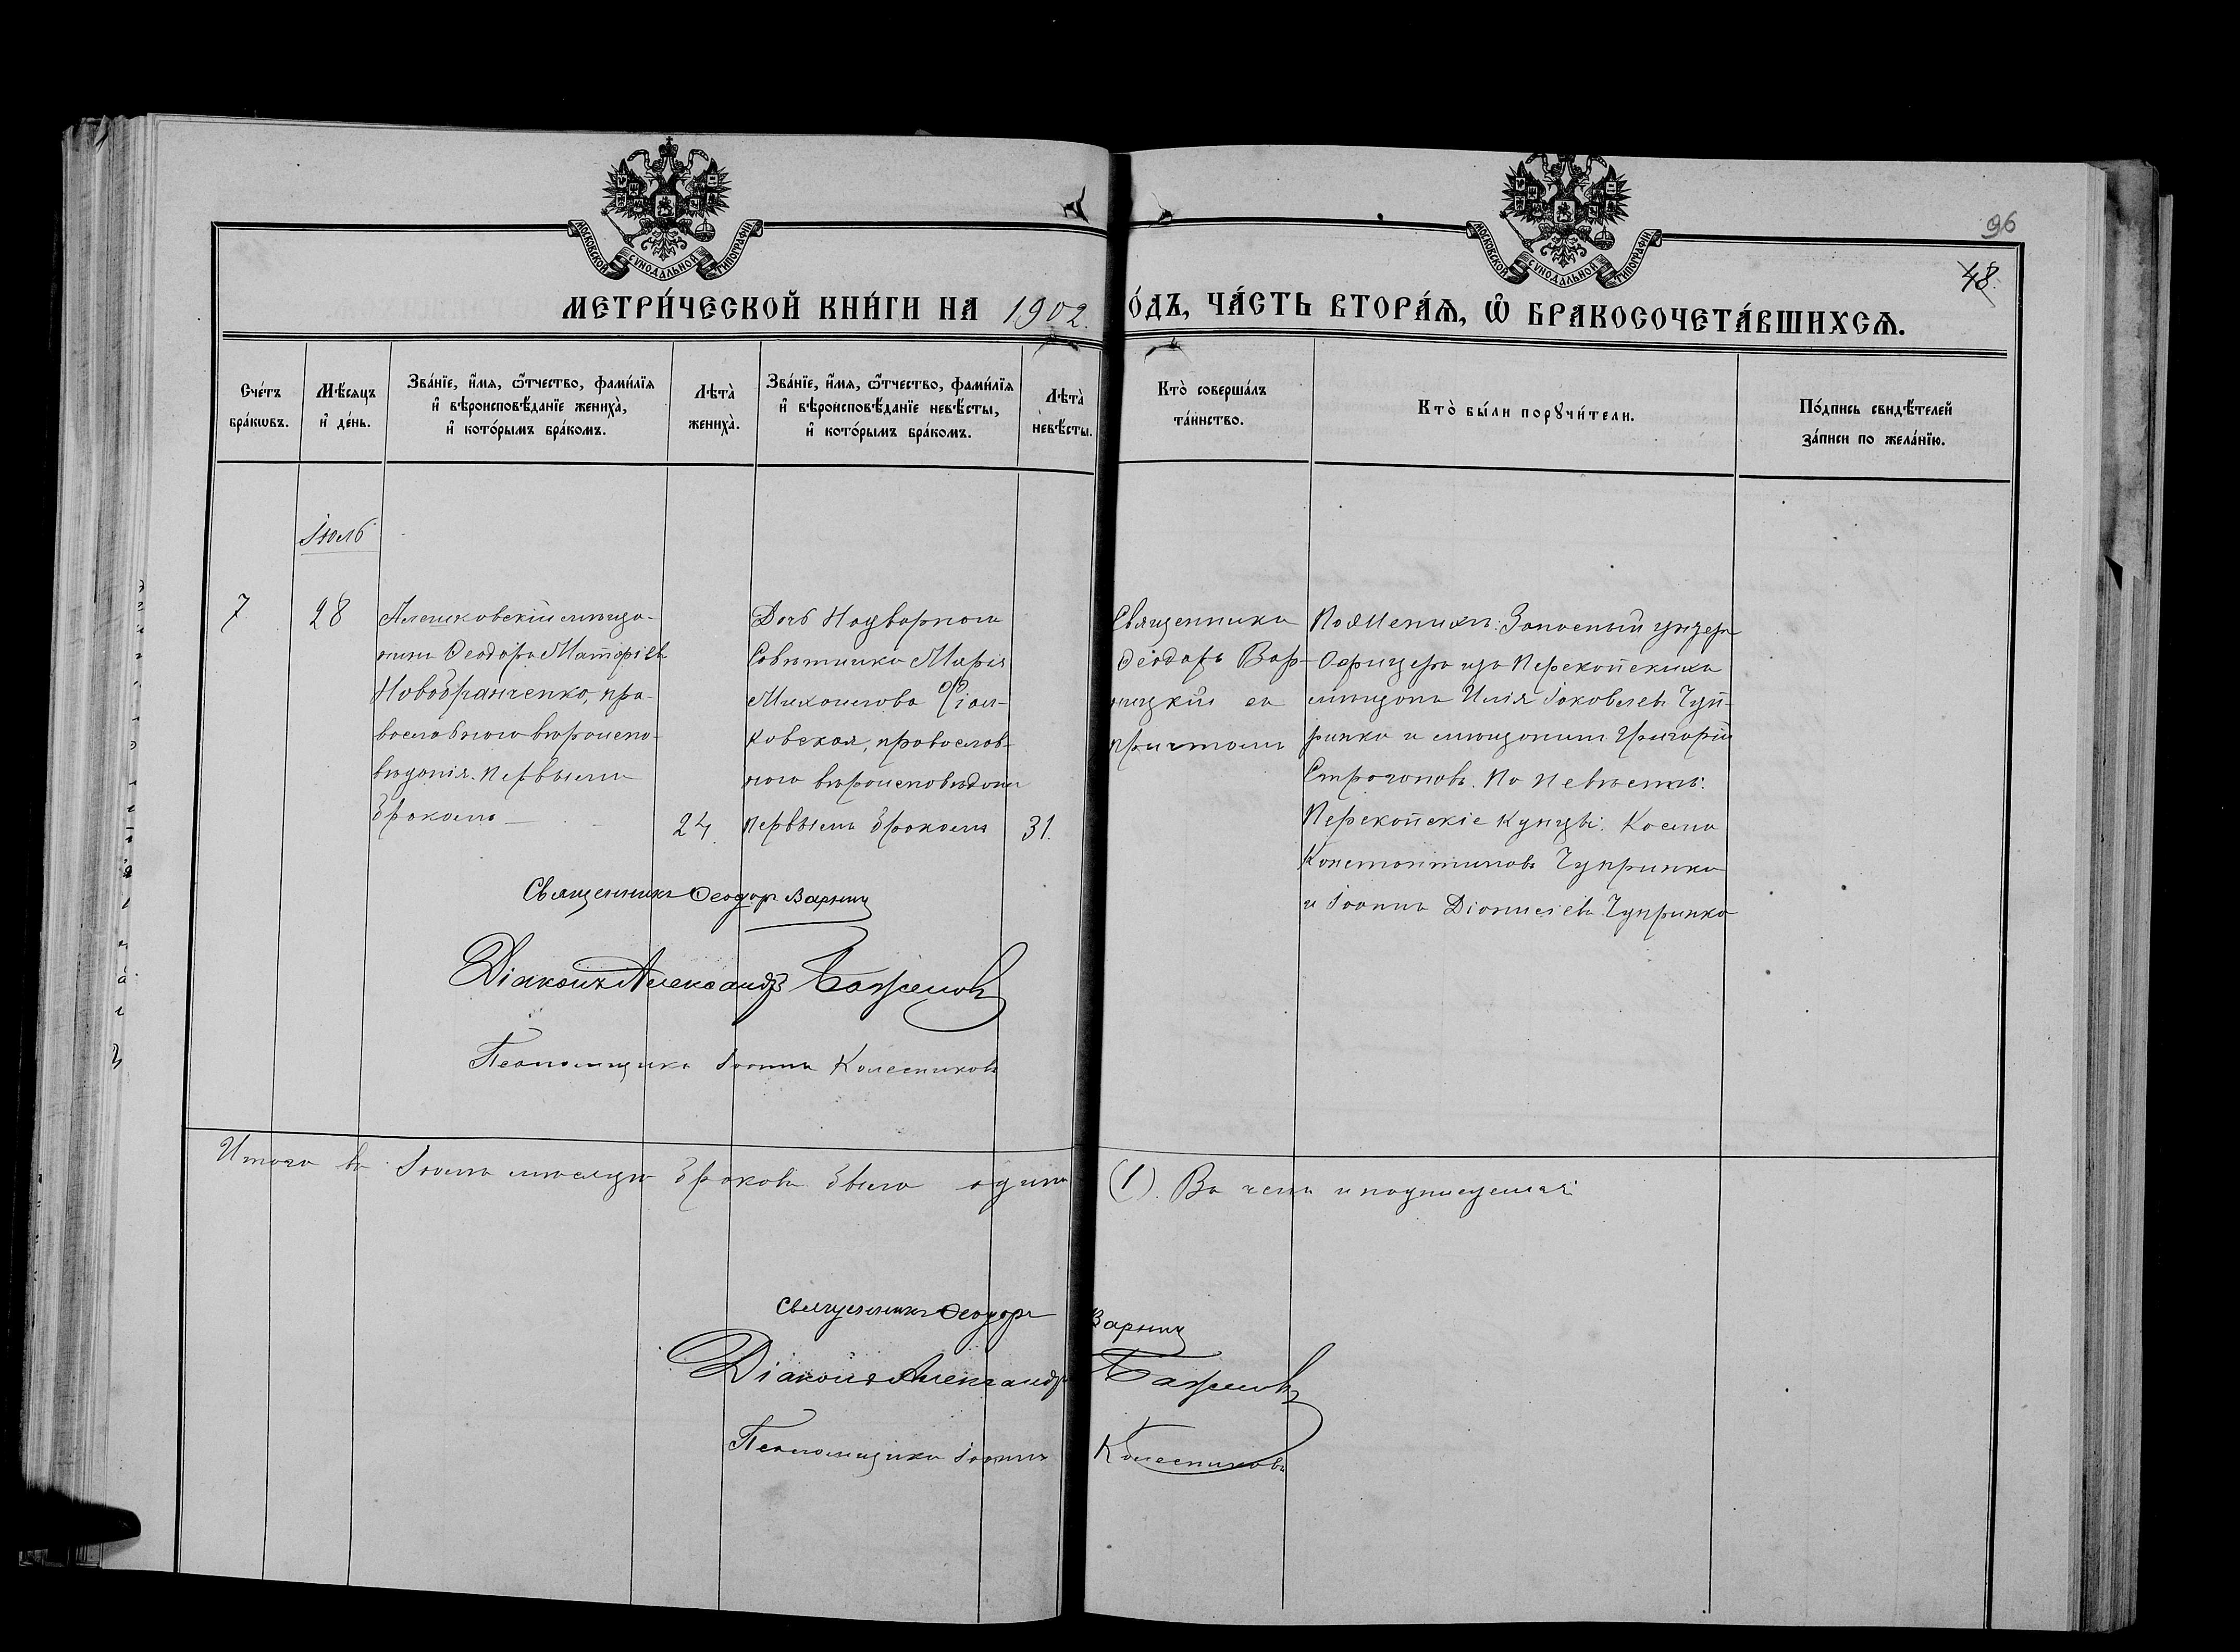 МОСКОВСКОЙ СѴНОДАЛЬНОЙ ТИПОГРАФІИ
МОСКОВСКОЙ СѴНОДАЛЬНОЙ ТИПОГРАФІИ
96
48.
МЕТРИ́ЧЕСКОЙ КНИ́ГИ НА 1902.
О́ДЪ, ЧА́СТЬ ВТОРА́Ѧ, Ѽ БРАКОСОЧЕТА́ВШИХСѦ.
Сче́тъ бра́кѡвъ.
Мѣ́сѧцъ и҆ де́нь.
Зва́нїе, и҆́мѧ, ѻ҆́тчество, фами́лїѧ и҆ вѣроисповѣ́данїе жениха̀, и҆ кото́рымъ бра́комъ.
Лѣта̀ жениха̀.
Зва́нїе, и҆́мѧ, ѻ҆́тчество, фами́лїѧ и҆ вѣроисповѣ́данїе невѣ́сты, и҆ кото́рымъ бра́комъ.
Лѣта̀ невѣ́сты.
Кто̀ соверша́лъ та́инство.
Кто̀ бы́ли порꙋчи́тели.
По́дпись свидѣ́телей за́писи по жела́нїю.
Іюль
7
28
Алешковскій мѣща-
нинъ Ѳеодоръ
Новобранченко, пра-
вославнаго вѣроиспо-
вѣданія. Первымъ
бракомъ
24.
Дочь Надворнаго
Совѣтника Марія
Михаилова Фіал-
ковская, православ-
наго вѣроисповѣданія
первымъ бракомъ
31.
Священникъ
Ѳеодоръ Вар-
ницкій съ
причтомъ
По Женихѣ: Запасный унтеръ
Офицеръ изъ Перекопскихъ
мѣщанъ Илія Іаковлевъ Чуп-
ринка и мѣщанинъ Григорій
Строгоновъ. По Невѣстѣ:
Перекопскіе купцы: Косма
Константиновъ Чупринка
и Іоаннъ Діонисіевъ Чупринка
Священникъ Ѳеодоръ Варниц
Діаконъ Александръ
Псаломщикъ Іоаннъ Колесниковъ
Итого въ Іюлѣ мѣсяцѣ браковъ было одинъ (1). Въ чемъ и подписуемся:
Священникъ Ѳеодоръ Варниц
Діаконъ Александръ
Псаломщикъ Іоаннъ Колесниковъ